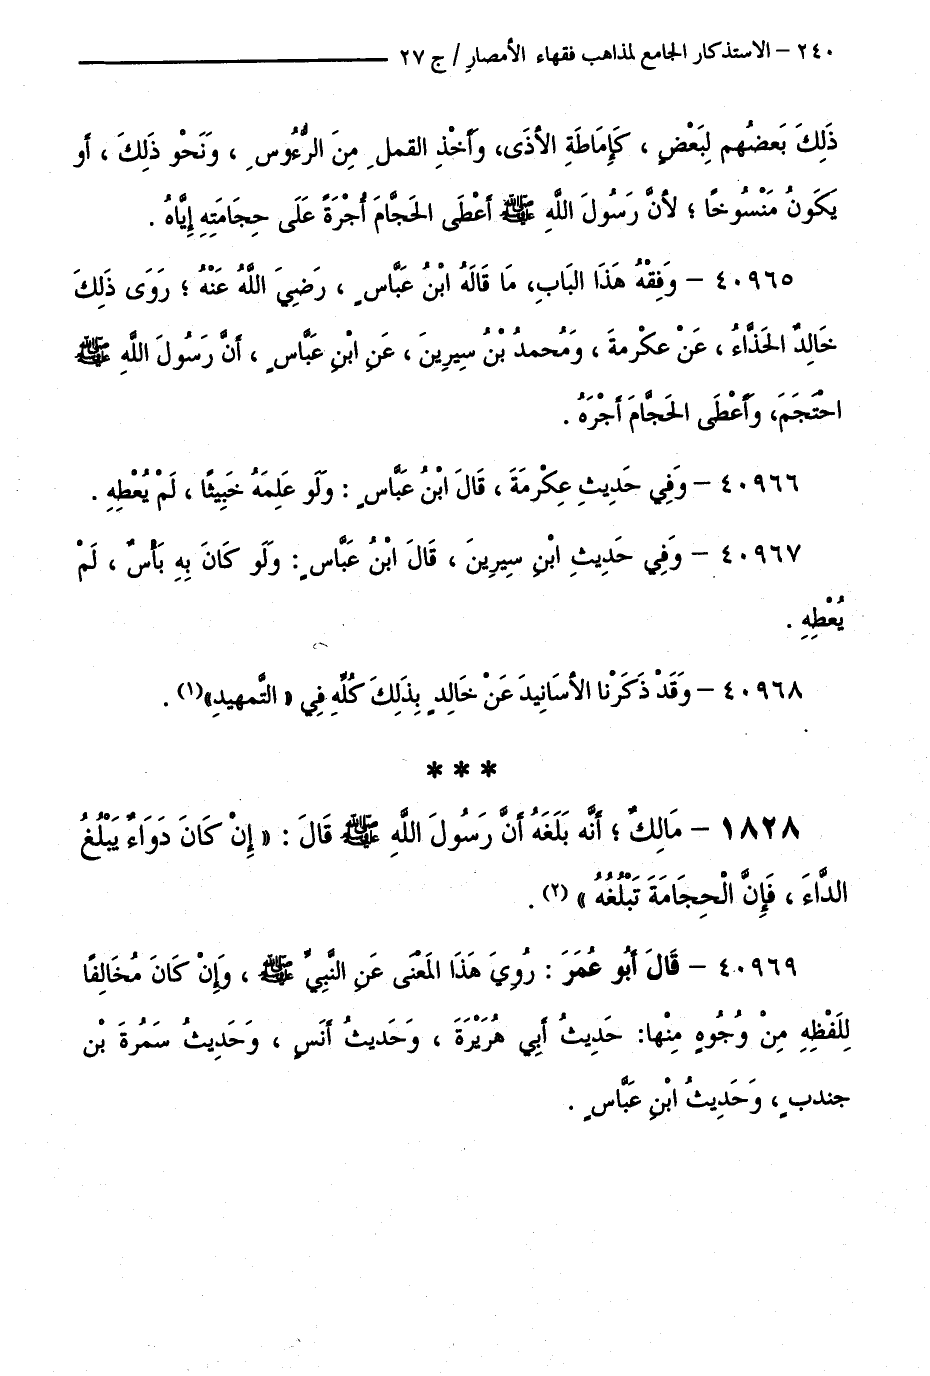 ٢٤٠ – الاستذكار الجامع لمذاهب فقهاء الأمصارِ / ج ٢٧
ذَلِكَ بَعضُهم لِبَعْضٍ ، كَإِمَاطَةِ الأذَى، وَأَخْذِ القملِ مِنَ الرُّءُوسِ ، وَنَحْوِ ذَلِكَ ، أو
يَكَونُ مَنْسُوخًا ؛ لأنَّ رَسُولَ اللَّهِ ﷺ أَعْطَى الحَجَّامَ أُجْرَةً عَلَى حِجَامَتِهِ إِيَّاهُ .
٤٠٩٦٥ – وَفِقْهُ هَذَا البَابِ، مَا قَالَهُ ابْنُ عَبَّاسٍ ، رَضِيَ اللَّهُ عَنْهُ ؛ رَوَى ذَلِكَ
خَالِدٌ الحَذَّاءُ ، عَنْ عكْرمةَ ، وَمُحمدُ بْنُ سيرِينَ ، عَنِ ابْنِ عبَّاسٍ ، أنَّ رَسُولَ اللَّهِ ﷺ
احْتَجَمَ، وَأَعْطَى الحَجَّامَ أجْرَهُ .
٤٠٩٦٦ – وَفِي حَديثِ عِكْرِمَةَ ، قَالَ ابْنُ عَبَّاسٍ : وَلَو عَلِمَهُ خَبِيثًا ، لَمْ يُعْطِهِ .
٤٠٩٦٧ – وَفِي حَدِيثِ ابْنِ سِيرِينَ ، قَالَ ابْنُ عَبَّاسٍ : وَلَو كَانَ بِهِ بَأْسٌ ، لَمْ
يُعْطِهِ .
٤٠٩٦٨ – وَقَدْ ذَكَرْنا الأسَانِيدَ عَنْ خَالِدٍ بِذَلِكَ كُلِّهِ فِي « التَّمهيدِ»(١) .
***
١٨٢٨ – مَالِكٌ ؛ أَنَّه بَلَغَهُ أنَّ رَسُولَ اللَّهِ ﷺ قَالَ : « إِنْ كَانَ دَوَاءٌ يَبْلُغُ
الدَّاءَ ، فَإِنَّ الْحِجَامَةَ تَبْلُغُهُ » (٢) .
٤٠٩٦٩ – قَالَ أَبُو عُمَرَ : رُوِيَ هَذَا المَعْنَى عَنِ النَّبِيِّ ﷺ ، وَإِنْ كَانَ مُخَالِفًا
لِلَفْظِهِ مِنْ وُجُوهٍ مِنْها: حَدِيثُ أَبِي هُرَيْرَةَ ، وَحَديثُ أَنَسٍ ، وَحَدِيثُ سَمُرةَ بْن
جندبٍ ، وَحَدِيثُ ابْنِ عَبَّاسٍ .